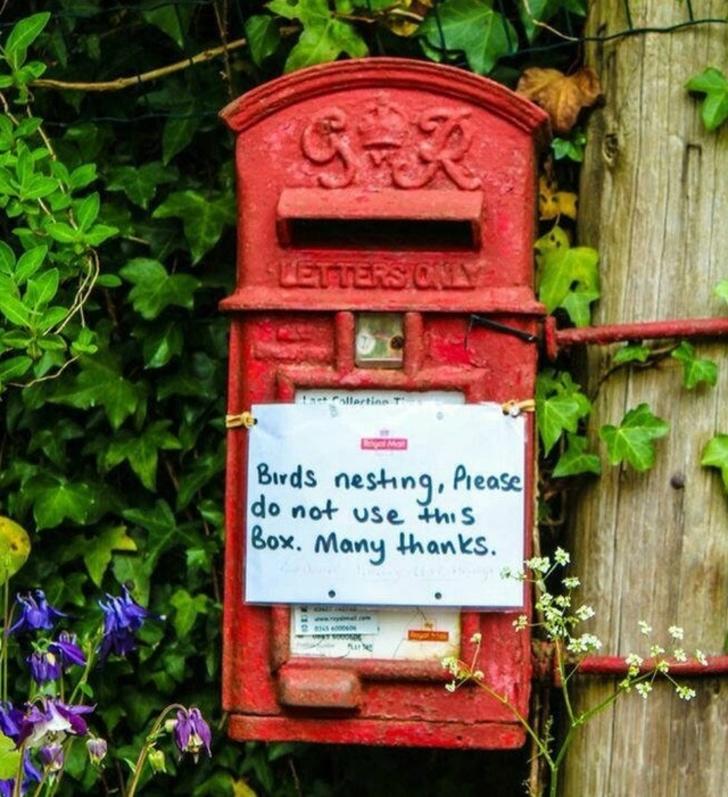 G R
LETTERS ONLY
Last Collection
Royal Mail
Birds nesting, Please
do not use this
Box. Many thanks.
www.royalmail.com
0345 6000606
Royal Mail